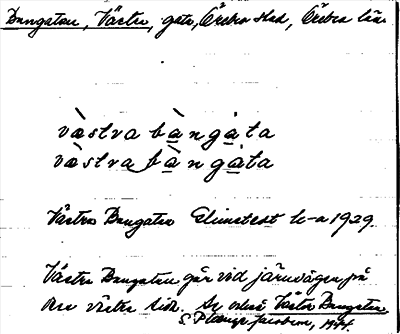 Bangatan, Västra, gata, Örebro stad, Örebro län
västra bàngáta
västra bàngáta
Västra Bangatan h-a 1929.
Västra Bangatan går vid järnvägen på
dess västra sida. Se även Västra Bangatan
1974.